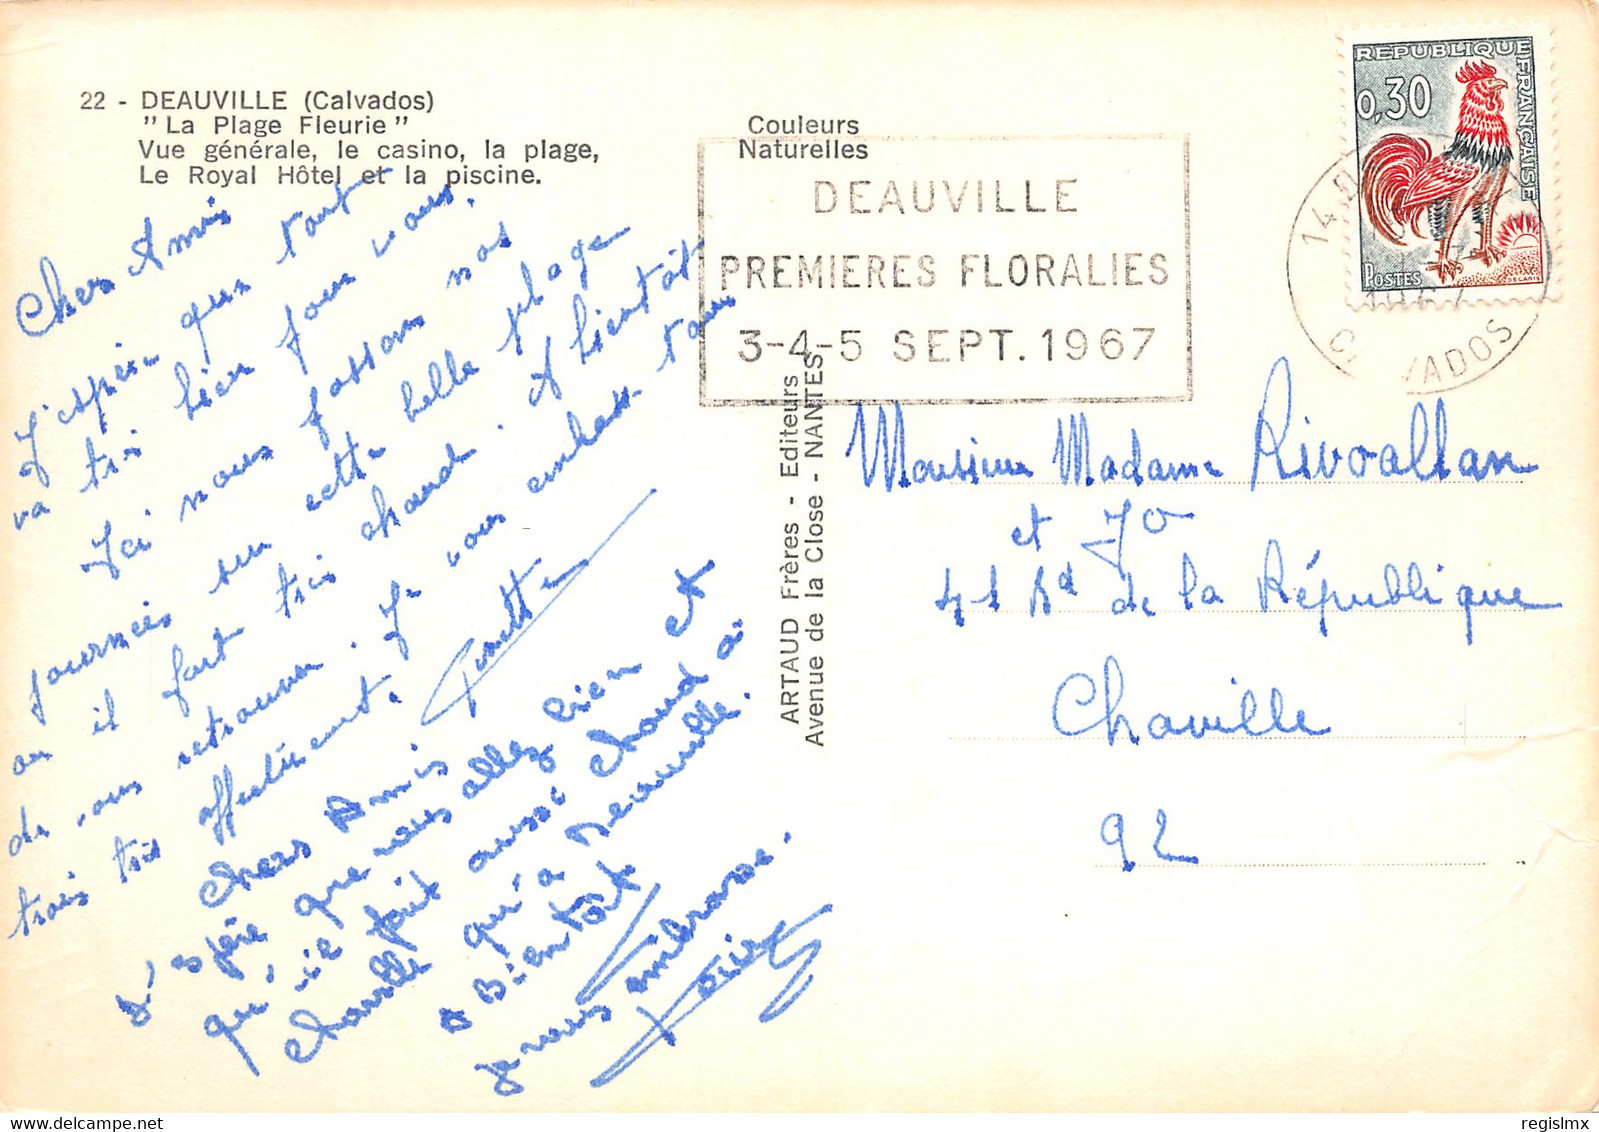 22 - DEAUVILLE (Calvados)
" La Plage Fleurie "
Vue générale, le casino, la plage,
Le Royal Hôtel et la piscine.
Couleurs
Naturelles
DEAUVILLE
PREMIERES FLORALIES
3-4-5 SEPT. 1967
REPUBLIQUE FRANÇAISE
0,30
POSTES
DECARIS
14
1967
CALVADOS
Chers Amis
J'espère que tout
va très bien pour vous.
Ici nous passons nos
journées sur cette belle plage
ou il fait très chaud. A bientôt
de vous retrouver. Je vous embrasse tous
trois très affectueusement.
Ginette
Chers Amis
J'espère que vous allez bien et
qu'il fait aussi chaud a
chaville qu'a Deauville.
a Bientôt
je vous embrasse.
ARTAUD Frères - Editeurs
Avenue de la Close - NANTES
Monsieur Madame Rivoallan
et Jo
41 Bd de la République
Chaville
92
regislmx